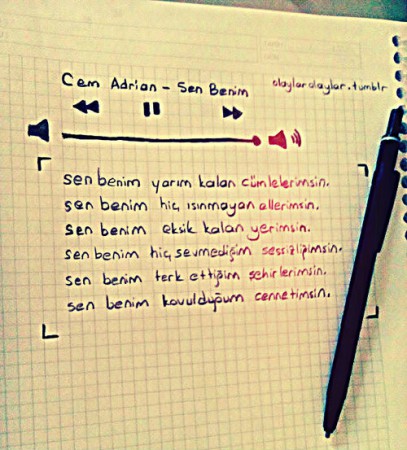 Cem Adrian - Sen Benim
olaylarolaylar.tumblr
sen benim yarım kalan cümlelerimsin.
sen benim hiç ısınmayan ellerimsin.
sen benim eksik kalan yerimsin.
sen benim hiç sevmediğim sessizliğimsin.
sen benim terk ettiğim şehirlerimsin.
sen benim kovulduğum cennetimsin.